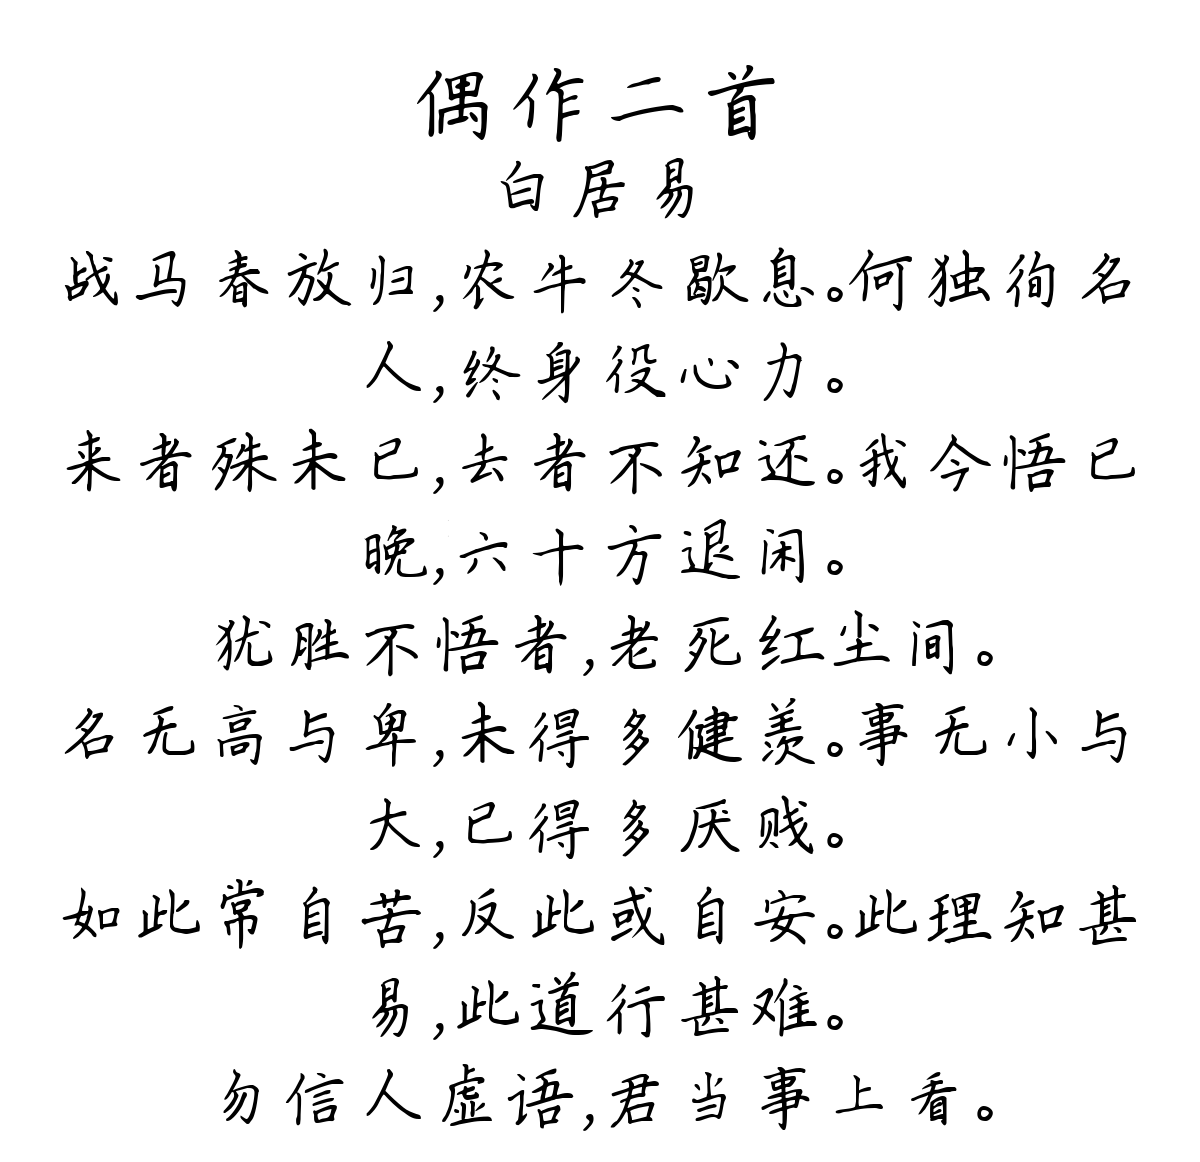 偶作二首
白居易
战马春放归,农牛冬歇息。何独徇名
人,终身役心力。
来者殊未已,去者不知还。我今悟已
晚,六十方退闲。
犹胜不悟者,老死红尘间。
名无高与卑,未得多健羡。事无小与
大,已得多厌贱。
如此常自苦,反此或自安。此理知甚
易,此道行甚难。
勿信人虚语,君当事上看。